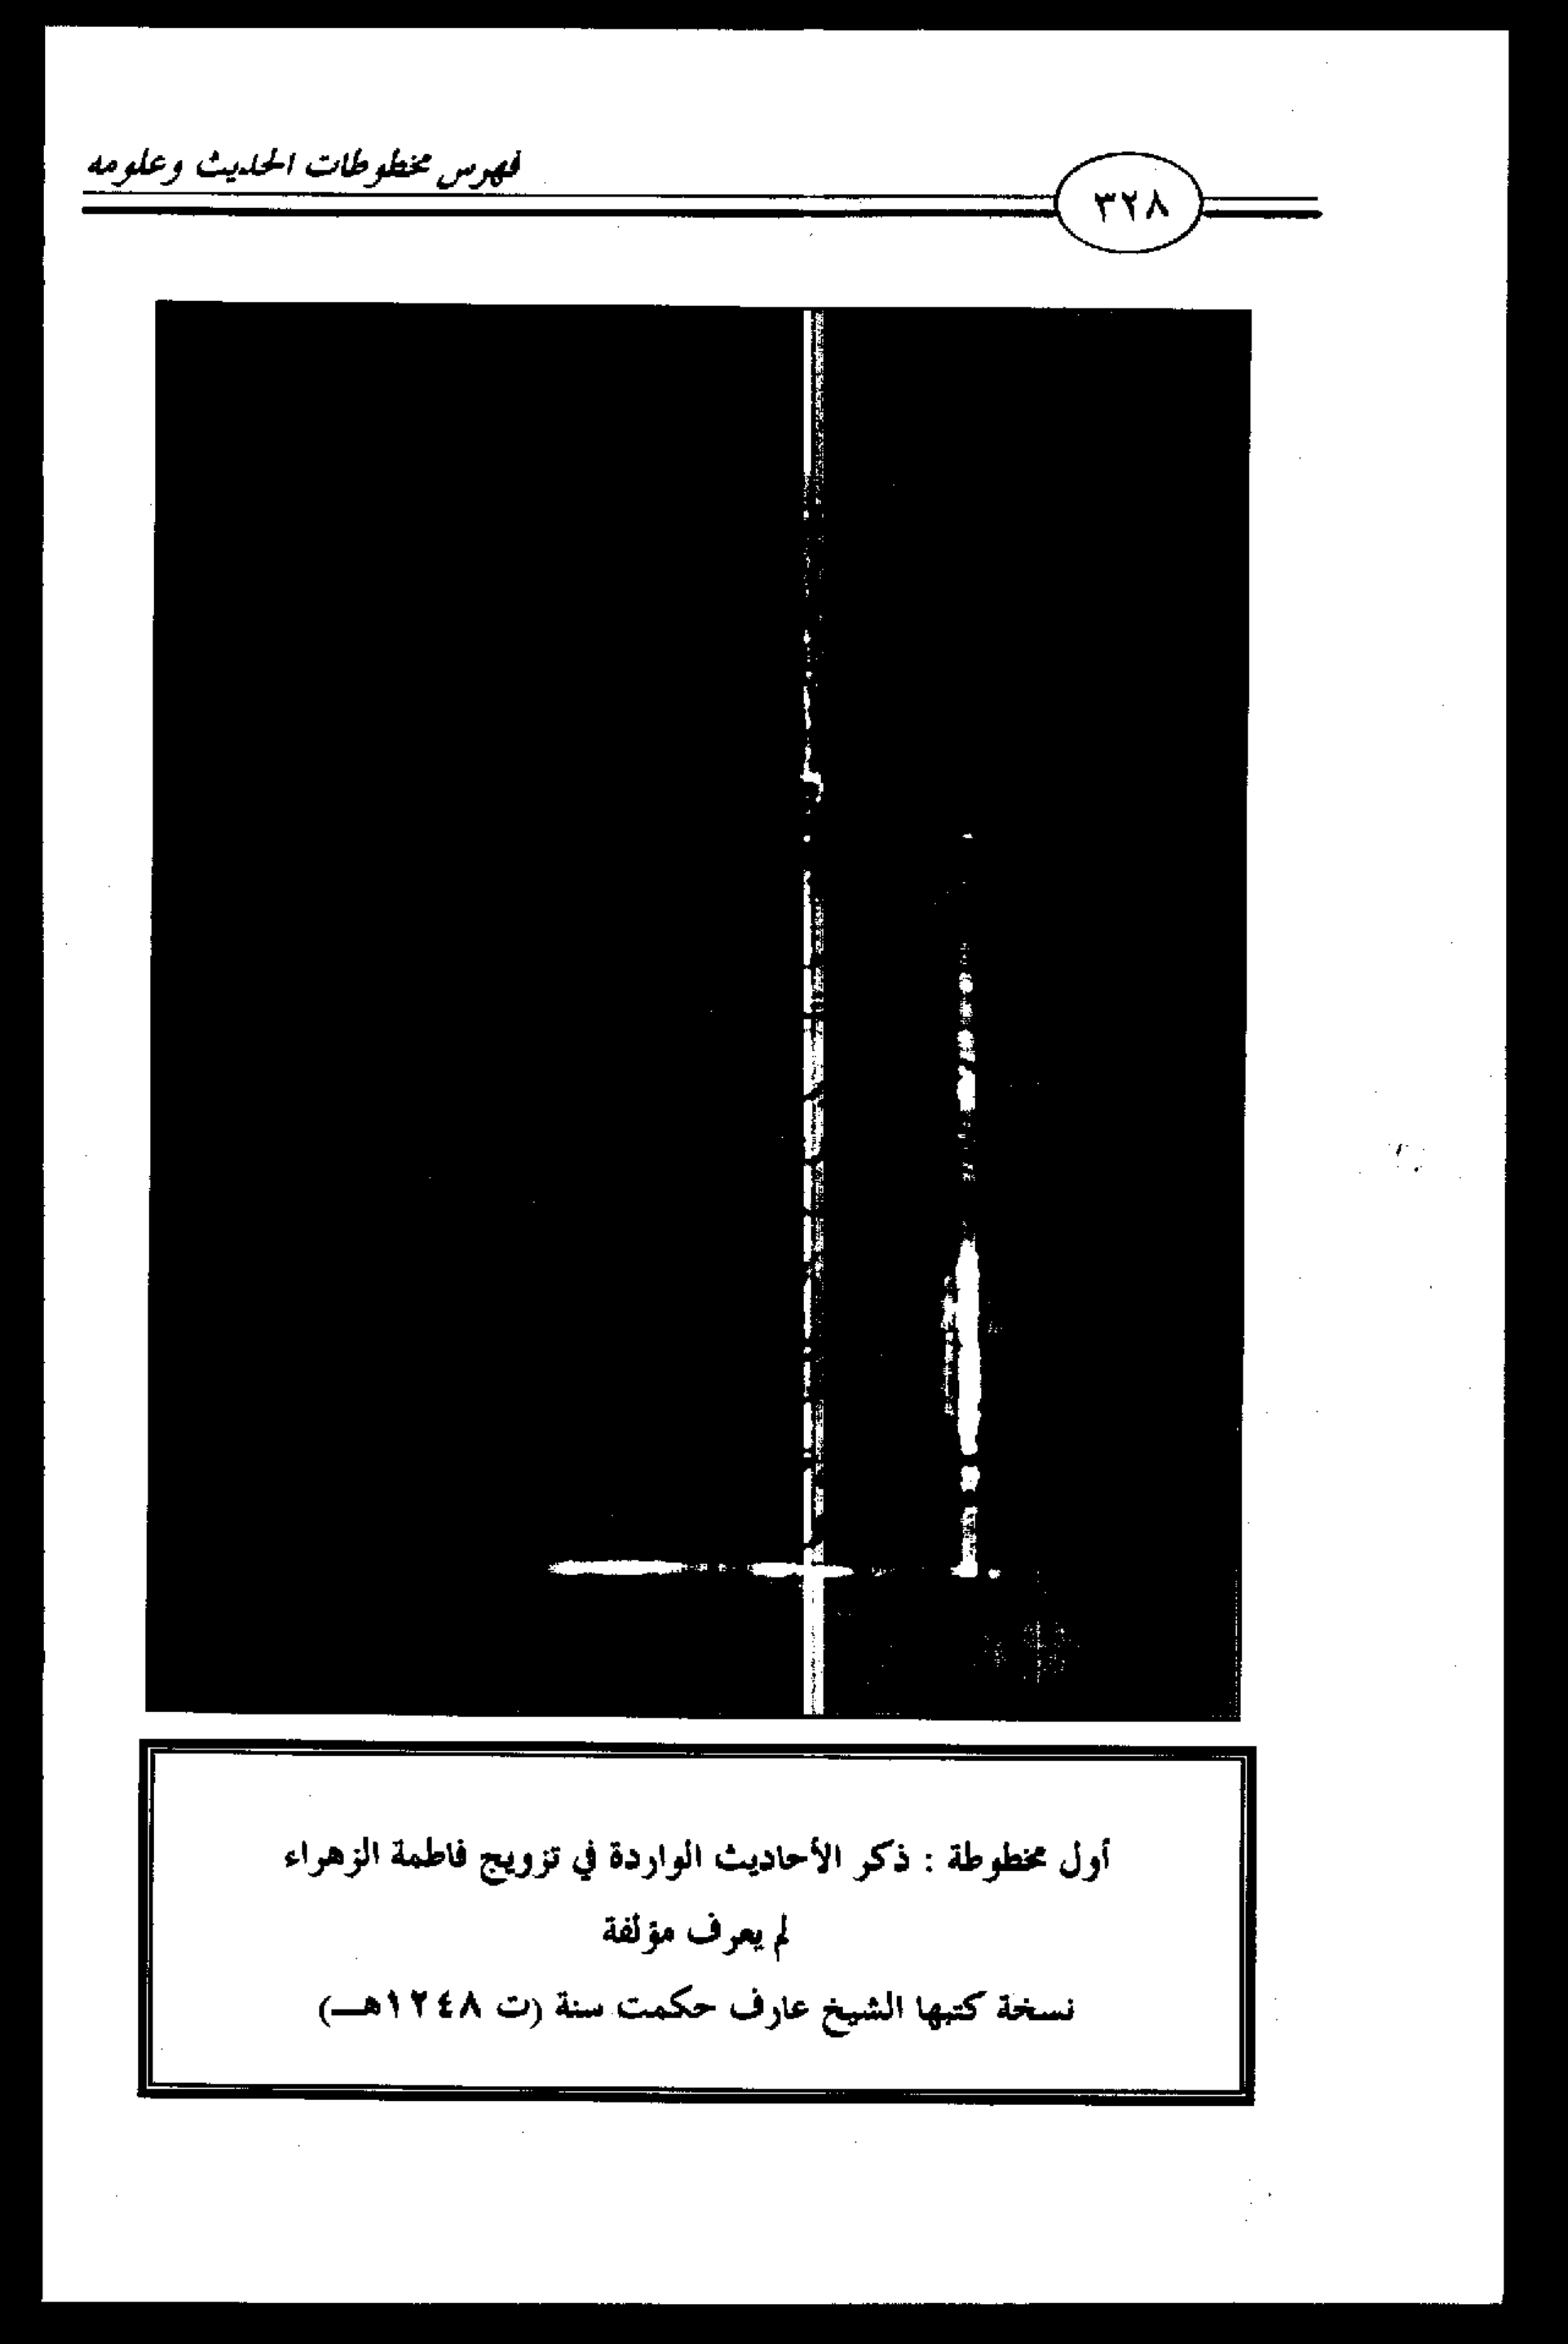 فهرس مخطوطات الحديث وعلومه
٣٢٨
أول مخطوطة : ذكر الأحاديث الواردة في تزويج فاطمة الزهراء
لم يعرف مؤلفة
نسخة كتبها الشيخ عارف حكمت سنة (ت ١٢٤٨هـــ)